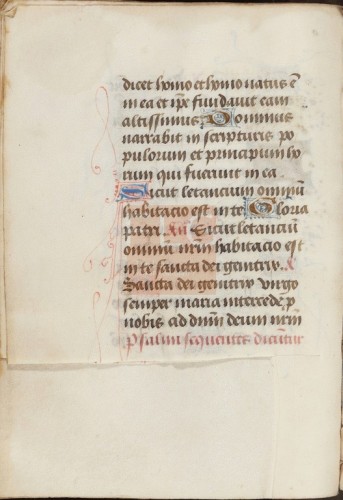 dicet homo et homo natus ē
in ea et ip̄e fundauit eam
altissimus Dominus
narrabit in scripturis po
pulorum et principum ho
rum qui fuerunt in ea
Sicut letancium omniū
habitacio est in te Gloria
patri Añ Sicut letanciū
omniū nr̄m habitacio est
in te sancta dei genitrix ℟
Sancta dei genitrix virgo
semper maria intercede ꝓ
nobis ad dn̄m deum nr̄m
Psalmi sequentes dicūtur